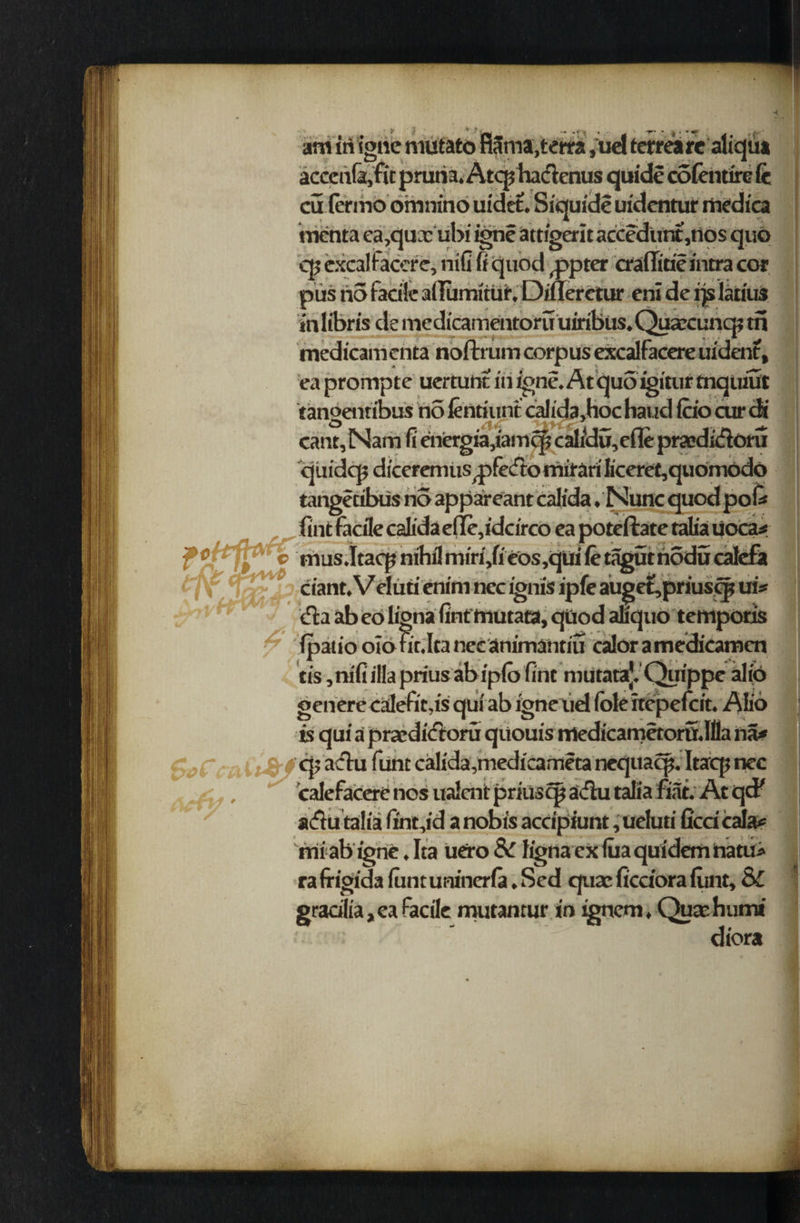 am in igne mutato flāma, terra, uel terreare aliqua
accensa, fit pruna. Atqꝫ hactenus quidē cōsentire se
cū sermo omnino uidet̄. Siquidē uidentur medica
menta ea, quæ ubi ignē attigerit accēdunt, nos quo
qꝫ excalfacere, nisi si quod ꝓpter crassitiē intra cor
pus nō facile assumitur. Disseretur eni de ijs latius
in libris de medicamentorū uiribus. Quæcunqꝫ tn̄
medicamenta nostrum corpus excalfacere uident̄,
ea prompte uertunt in ignē. At quō igitur inquiūt
tangentibus nō sentiunt calida, hoc haud scio cur di
cant, Nam si energia, iamqꝫ calidū, esse prædictorū
quidqꝫ diceremus ꝓfecto mirari liceret, quomodo
tangētibus nō appareant calida. Nunc quod pos⸗
sint facile calida esse, idcirco ea potestate talia uoca⸗
mus. Itaqꝫ nihil miri, si eos, qui se tāgūt nōdū calefa
ciant. Veluti enim nec ignis ipse auget̄, priusqꝫ ui⸗
cta ab eo ligna sint mutata, quod aliquo temporis
spatio oīo fit. Ita nec animantiū calor a medicamen
tis, nisi illa prius ab ipso sint mutata. Quippe alio
genere calefit, is qui ab igne uel sole ītepescit. Alio
is qui a prædictorū quouis medicamētorū. Illa nā⸗
qꝫ actu sunt calida, medicamēta nequaqꝫ. Itaqꝫ nec
calefacere nos ualent priusqꝫ actu talia fiāt. At qd'
actu talia sint, id a nobis accipiunt, ueluti sicci cala⸗
mi ab igne. Ita uero & ligna ex sua quidem natu⸗
ra frigida sunt uniuersa. Sed quæ sicciora sunt, &
gracilia, ea facile mutantur in ignem. Quæ humi
diora